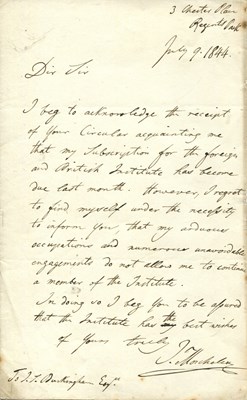 3 Chester Place
Regents Park
July 9. 1844.
Dir Sir
I beg to acknowledge the receipt
of your Circular acquainting me
that my Subscription for the foreign
and British Institute has become
due last month. However, I regret
to find myself under the necessity
to inform you, that my arduous
occupations and numerous unavoidable
engagements do not allow me to continue
a member of the Institute.
In doing so I beg you to be assured
that the Institute has the best wishes
of Yours truly
J. Moscheles
To J. S. Buckingham Esqr.